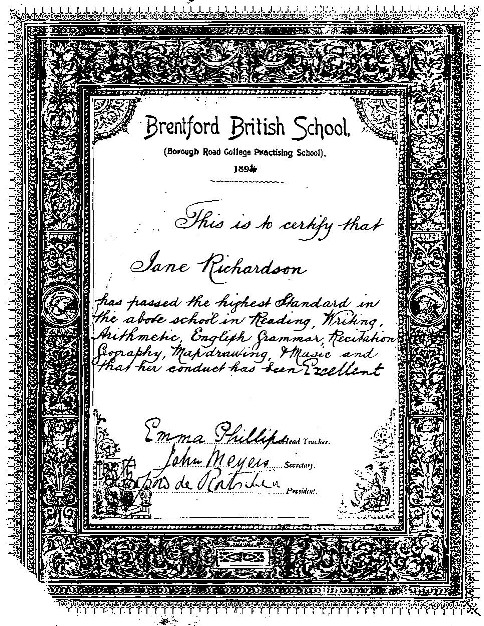 Brentford British School,
(Borough Road College Practising School).
1894
This is to certify that
Jane Richardson
has passed the highest Standard in
the above school in Reading, Writing,
Arithmetic, English Grammar, Recitation
Geography, Mapdrawing, & Music and
that her conduct has been Excellent
Emma Phillips Head Teacher.
John Meyers Secretary.
de President.